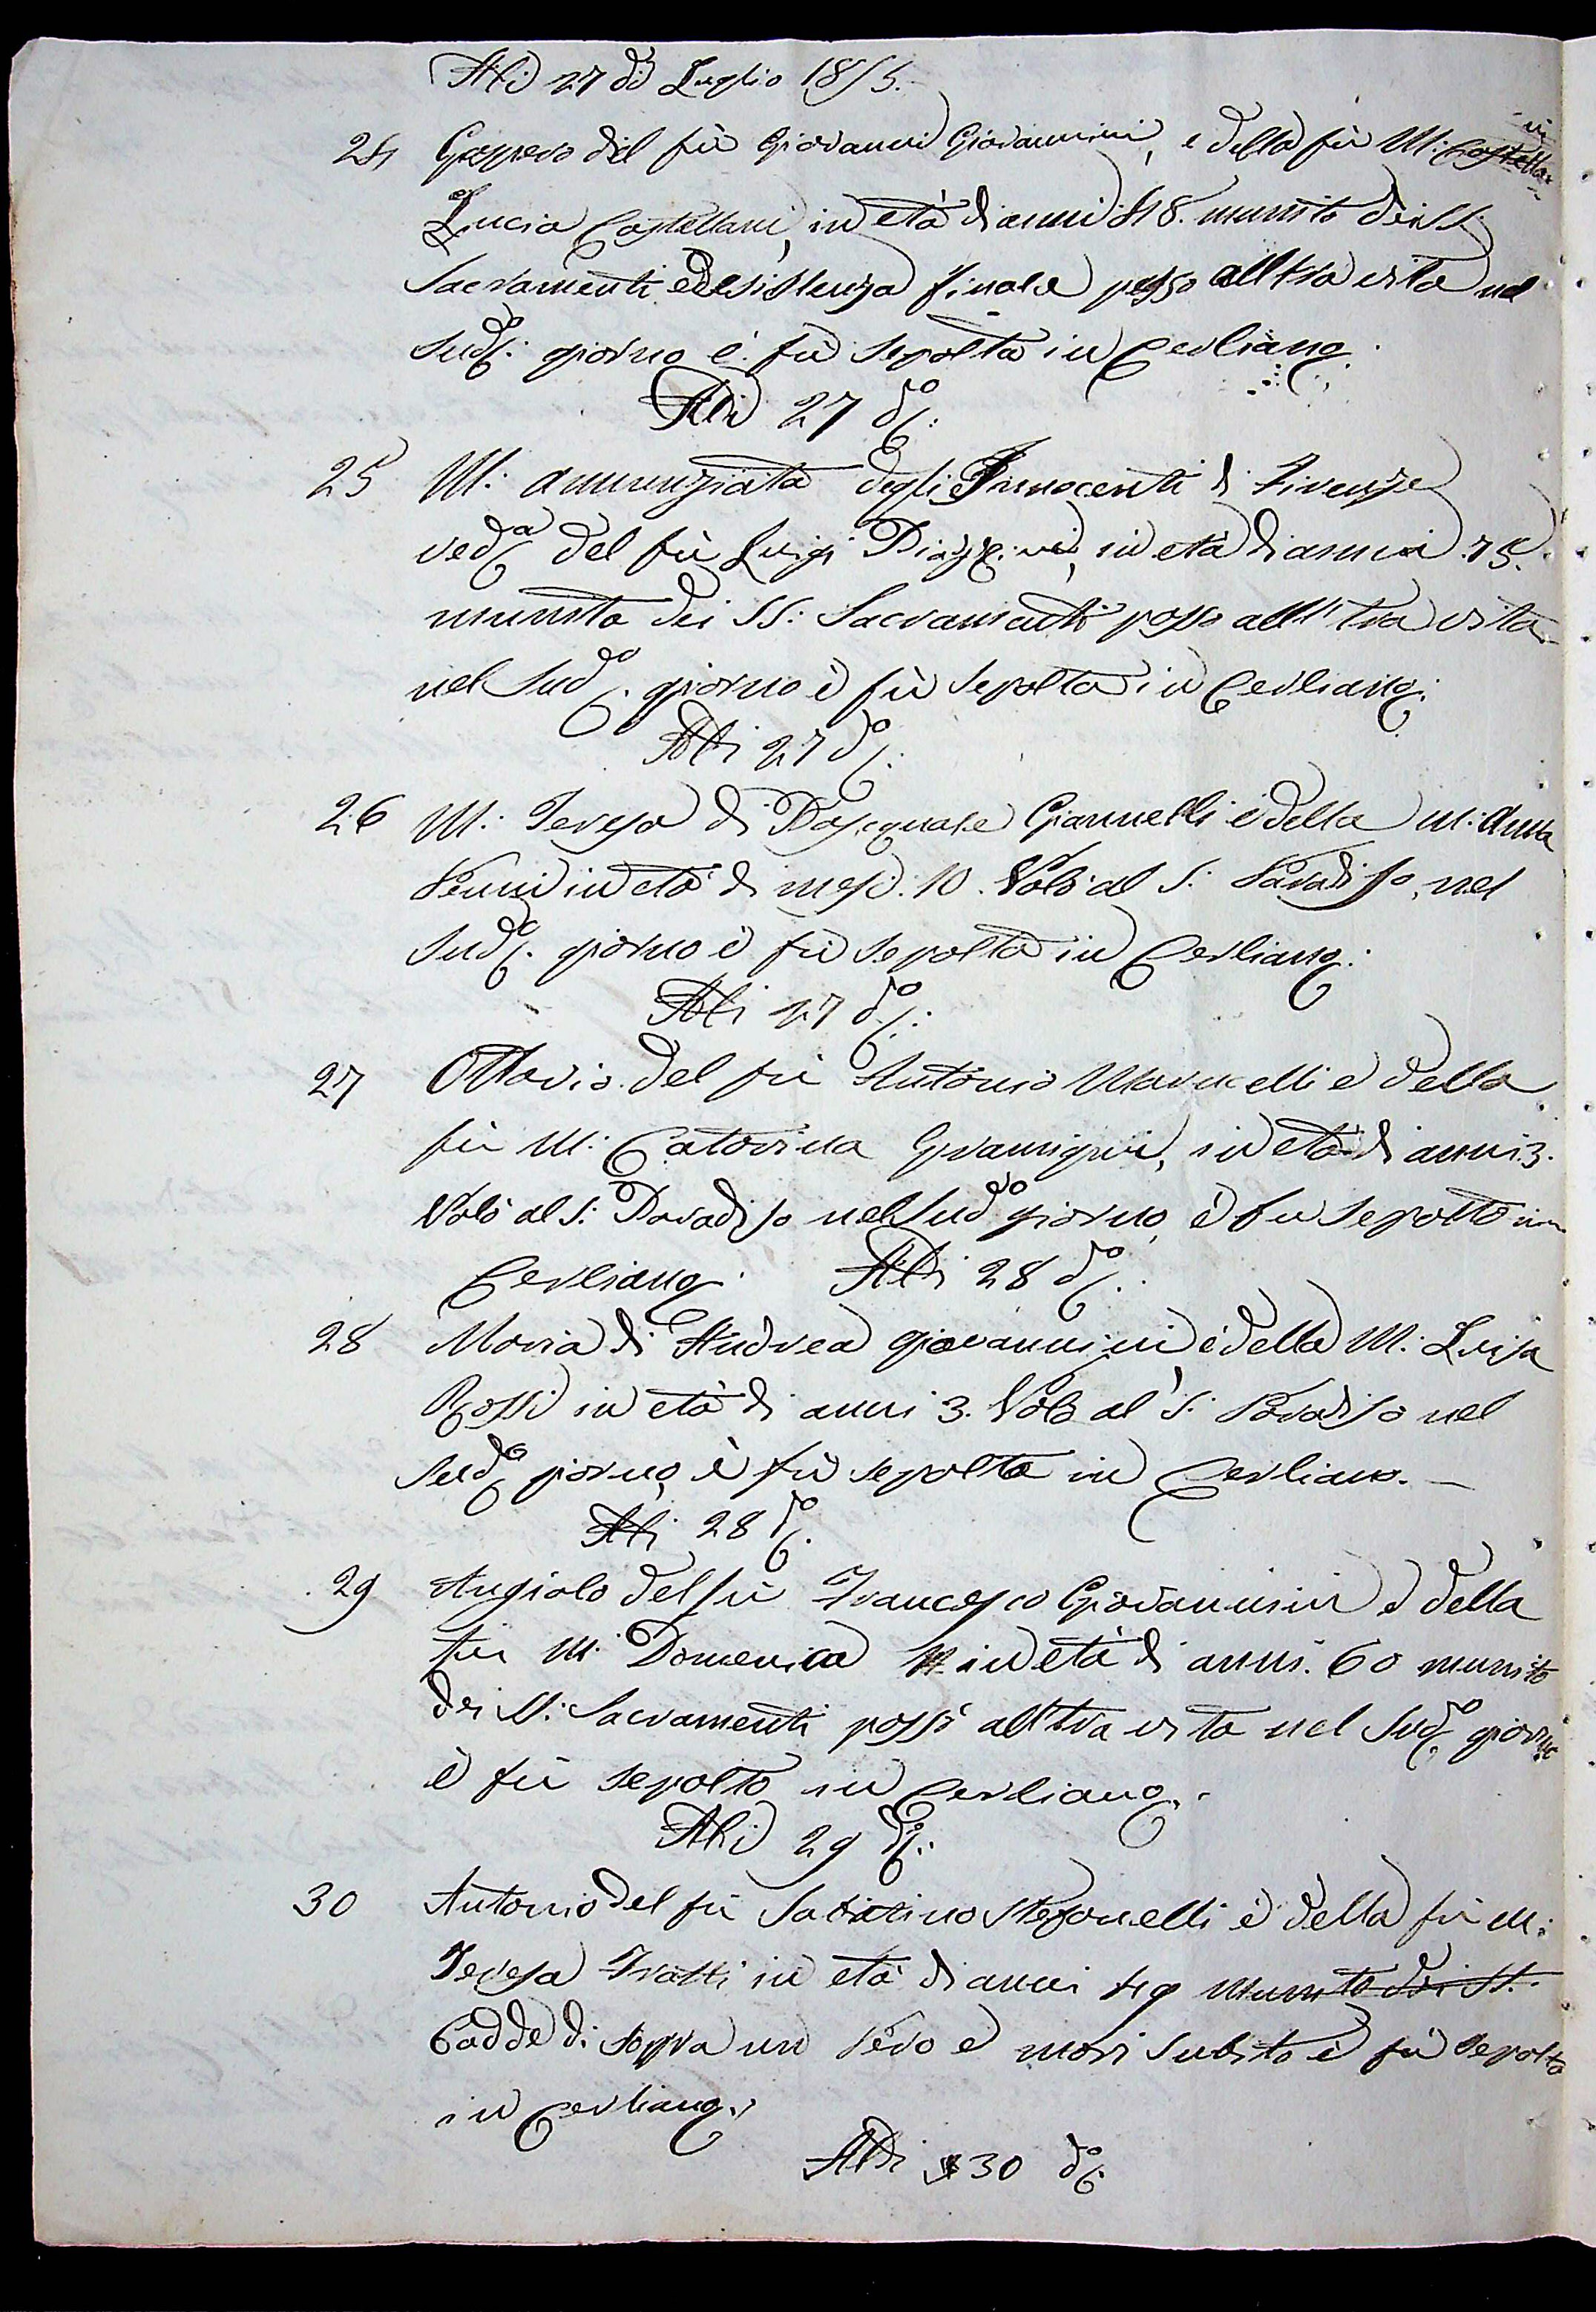 Adi 27 di Luglio 1855.
24 Gaspero del fù Giovanni Giovannini, e della fù M: Castellani
Lucia Castellani, in età di anni 48. munito dei SS:
Sacramenti ed esistenza finale passo all'tra vita nel
Sudo: giorno è fù sepolta in Cerliano.
Adi 27 do:
25 M: Annunziata degli Innocenti di Firenze
veda del fù Luigi Piazzini, in età di anni 75.
munita dei SS: Sacramenti passo all'tra vita
nel Sudo. giorno è fù sepolta in Cerliano.
Adi 27 do:
26 M: Teresa di Pasquale Giannelli è della M: Anna
Penni in età di mesi. 10. Volò al S: Paradiso, nel
Sudo. giorno è fù sepolta in Cerliano.
Adi 27 do:
27 Ottavio del fù Antonio Marucelli e della
fù M: Catorina Gramigni, in età di anni 3.
Volò al S: Paradiso nel Sudo giorno, è fu sepolto in
Cerliano. Adi 28 do.
28 Maria di Andrea Giovannini è della M: Luisa
Rossi in età di anni 3. Volò al S: Paradiso nel
Sudo giorno, è fù sepolta in Cerliano.
Adi 28 do.
29 Angiolo del fù Francesco Giovannini e della
fù M: Domenica N in età di anni. 60 munito
dei SS: Sacramenti passò all'tra vita nel Sudo giorno
è fù sepolto in Cerliano.
Adi 29 do:
30 Antonio del fù Sabatino Stefanelli è della fù M:
Teresa Fratti in età di anni 49 Munito dei SS.
Cadde di sopra un Pero e mori subito è fù sepolto
in Cerliano.
Adi 30 do.